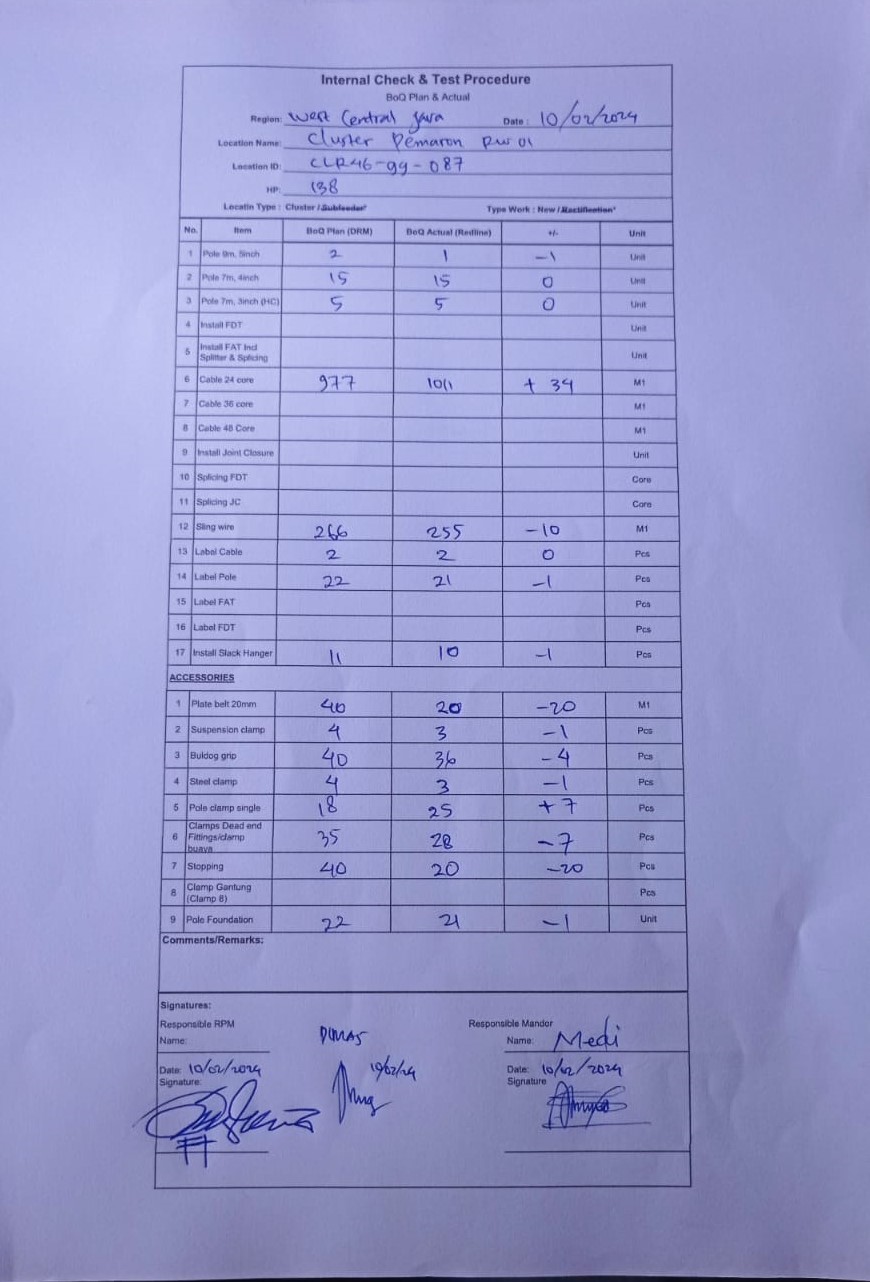 Internal Check & Test Procedure
BoQ Plan & Actual
Region: West Central Java Date : 10/02/2024
Location Name: Cluster Pemaron RW 01
Location ID: CLR46-gg-087
HP: 138
Locatin Type : Cluster / Subfeeder* Type Work : New / Rectification*
No. Item BoQ Plan (DRM) BoQ Actual (Redline) +/- Unit
1 Pole 9m, 5inch 2 1 -1 Unit
2 Pole 7m, 4inch 15 15 0 Unit
3 Pole 7m, 3inch (HC) 5 5 0 Unit
4 Install FDT Unit
5 Install FAT Incl Splitter & Splicing Unit
6 Cable 24 core 977 1011 + 34 M1
7 Cable 36 core M1
8 Cable 48 Core M1
9 Install Joint Closure Unit
10 Splicing FDT Core
11 Splicing JC Core
12 Sling wire 266 255 -10 M1
13 Label Cable 2 2 0 Pcs
14 Label Pole 22 21 -1 Pcs
15 Label FAT Pcs
16 Label FDT Pcs
17 Install Slack Hanger 11 10 -1 Pcs
ACCESSORIES
1 Plate belt 20mm 40 20 -20 M1
2 Suspension clamp 4 3 -1 Pcs
3 Buldog grip 40 36 -4 Pcs
4 Steel clamp 4 3 -1 Pcs
5 Pole clamp single 18 25 +7 Pcs
6 Clamps Dead end Fittings/clamp buaya 35 28 -7 Pcs
7 Stopping 40 20 -20 Pcs
8 Clamp Gantung (Clamp 8) Pcs
9 Pole Foundation 22 21 -1 Unit
Comments/Remarks:
Signatures:
Responsible RPM Responsible Mandor
Name: DIMAS Name: Medi
Date: 10/02/2024 10/02/24 Date: 10/02/2024
Signature: Signature